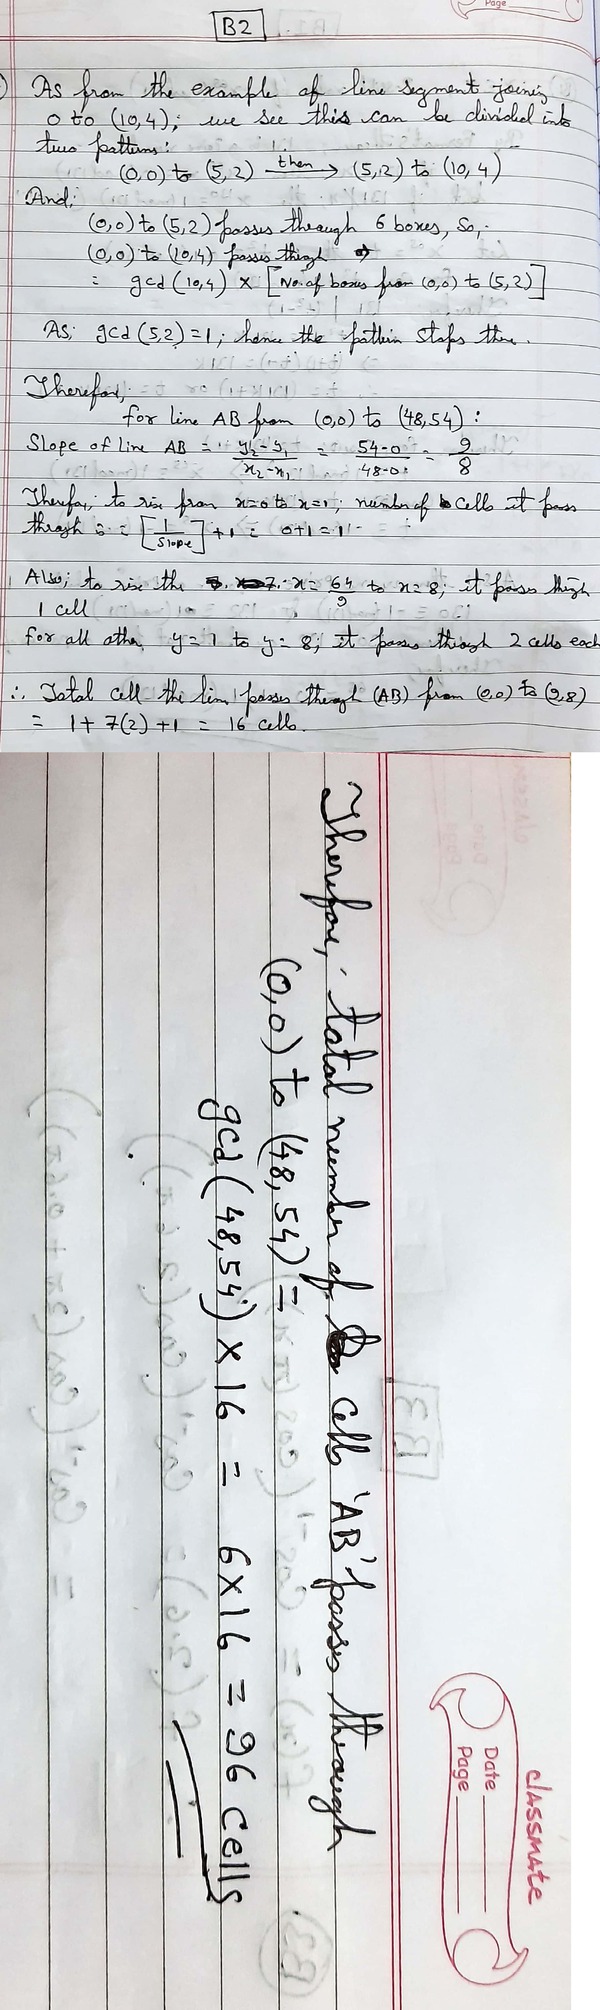 Page
B2
As from the example of line segment joining
0 to (10,4); we see this can be divided into
two patterns:
(0,0) to (5,2) then → (5,2) to (10,4)
And;
(0,0) to (5,2) passes through 6 boxes, So,
(0,0) to (10,4) passes throgh ⇒
= gcd (10,4) × [No. of boxes from (0,0) to (5,2)]
As; gcd (5,2) = 1; hence the pattern stops there.
Therefore,
for line AB from (0,0) to (48,54) :
Slope of line AB = y2-y1/x2-x1 = 54-0/48-0 = 9/8
Therefore, to rise from x=0 to x=1; number of cells it pass
through is = [1/Slope] + 1 = 0+1 = 1
Also; to rise the x = 64/9 to x = 8; it passes through
1 cell
for all other y = 1 to y = 8; it passes through 2 cells each
∴ Total cell the line passes through (AB) from (0,0) to (9,8)
= 1 + 7(2) + 1 = 16 cells.
Therefore, total number of cells 'AB' passes through
(0,0) to (48,54) =
gcd (48,54) × 16 = 6×16 = 96 cells
classmate
Date
Page